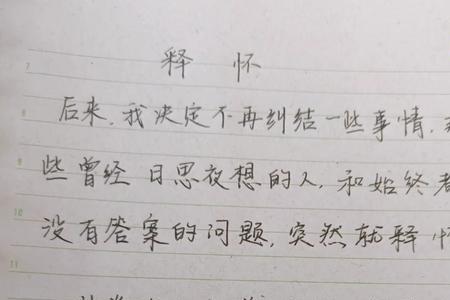 释怀
后来,我决定不再纠结一些事情,
些曾经日思夜想的人,和始终
没有答案的问题,突然就释怀